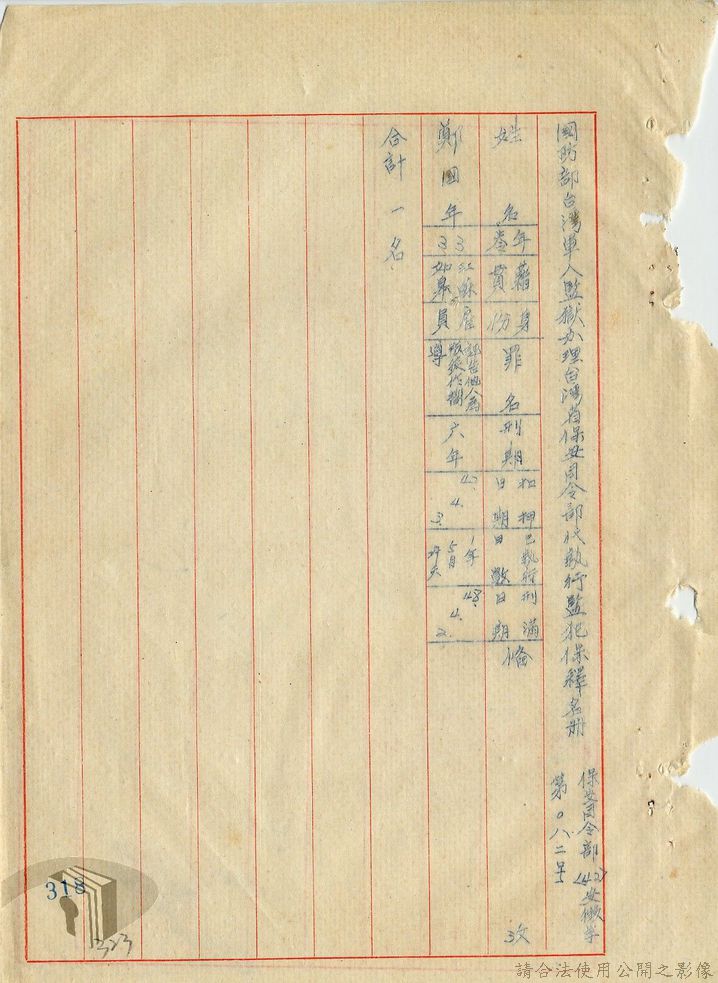 國防部台灣軍人監獄办理台灣省保安司令部代執行監犯保釋名册
保安司令部(42)安
第〇八二号
姓名
年
籍貫
身份
罪名
刑期
扣押日期
已執行日數
刑滿日期
備攷
鄭國年
33
江蘇如皋
雇員
六年
42.4.3.
1年5月
48.4.2.
合計一名
318
323
請合法使用公開之影像